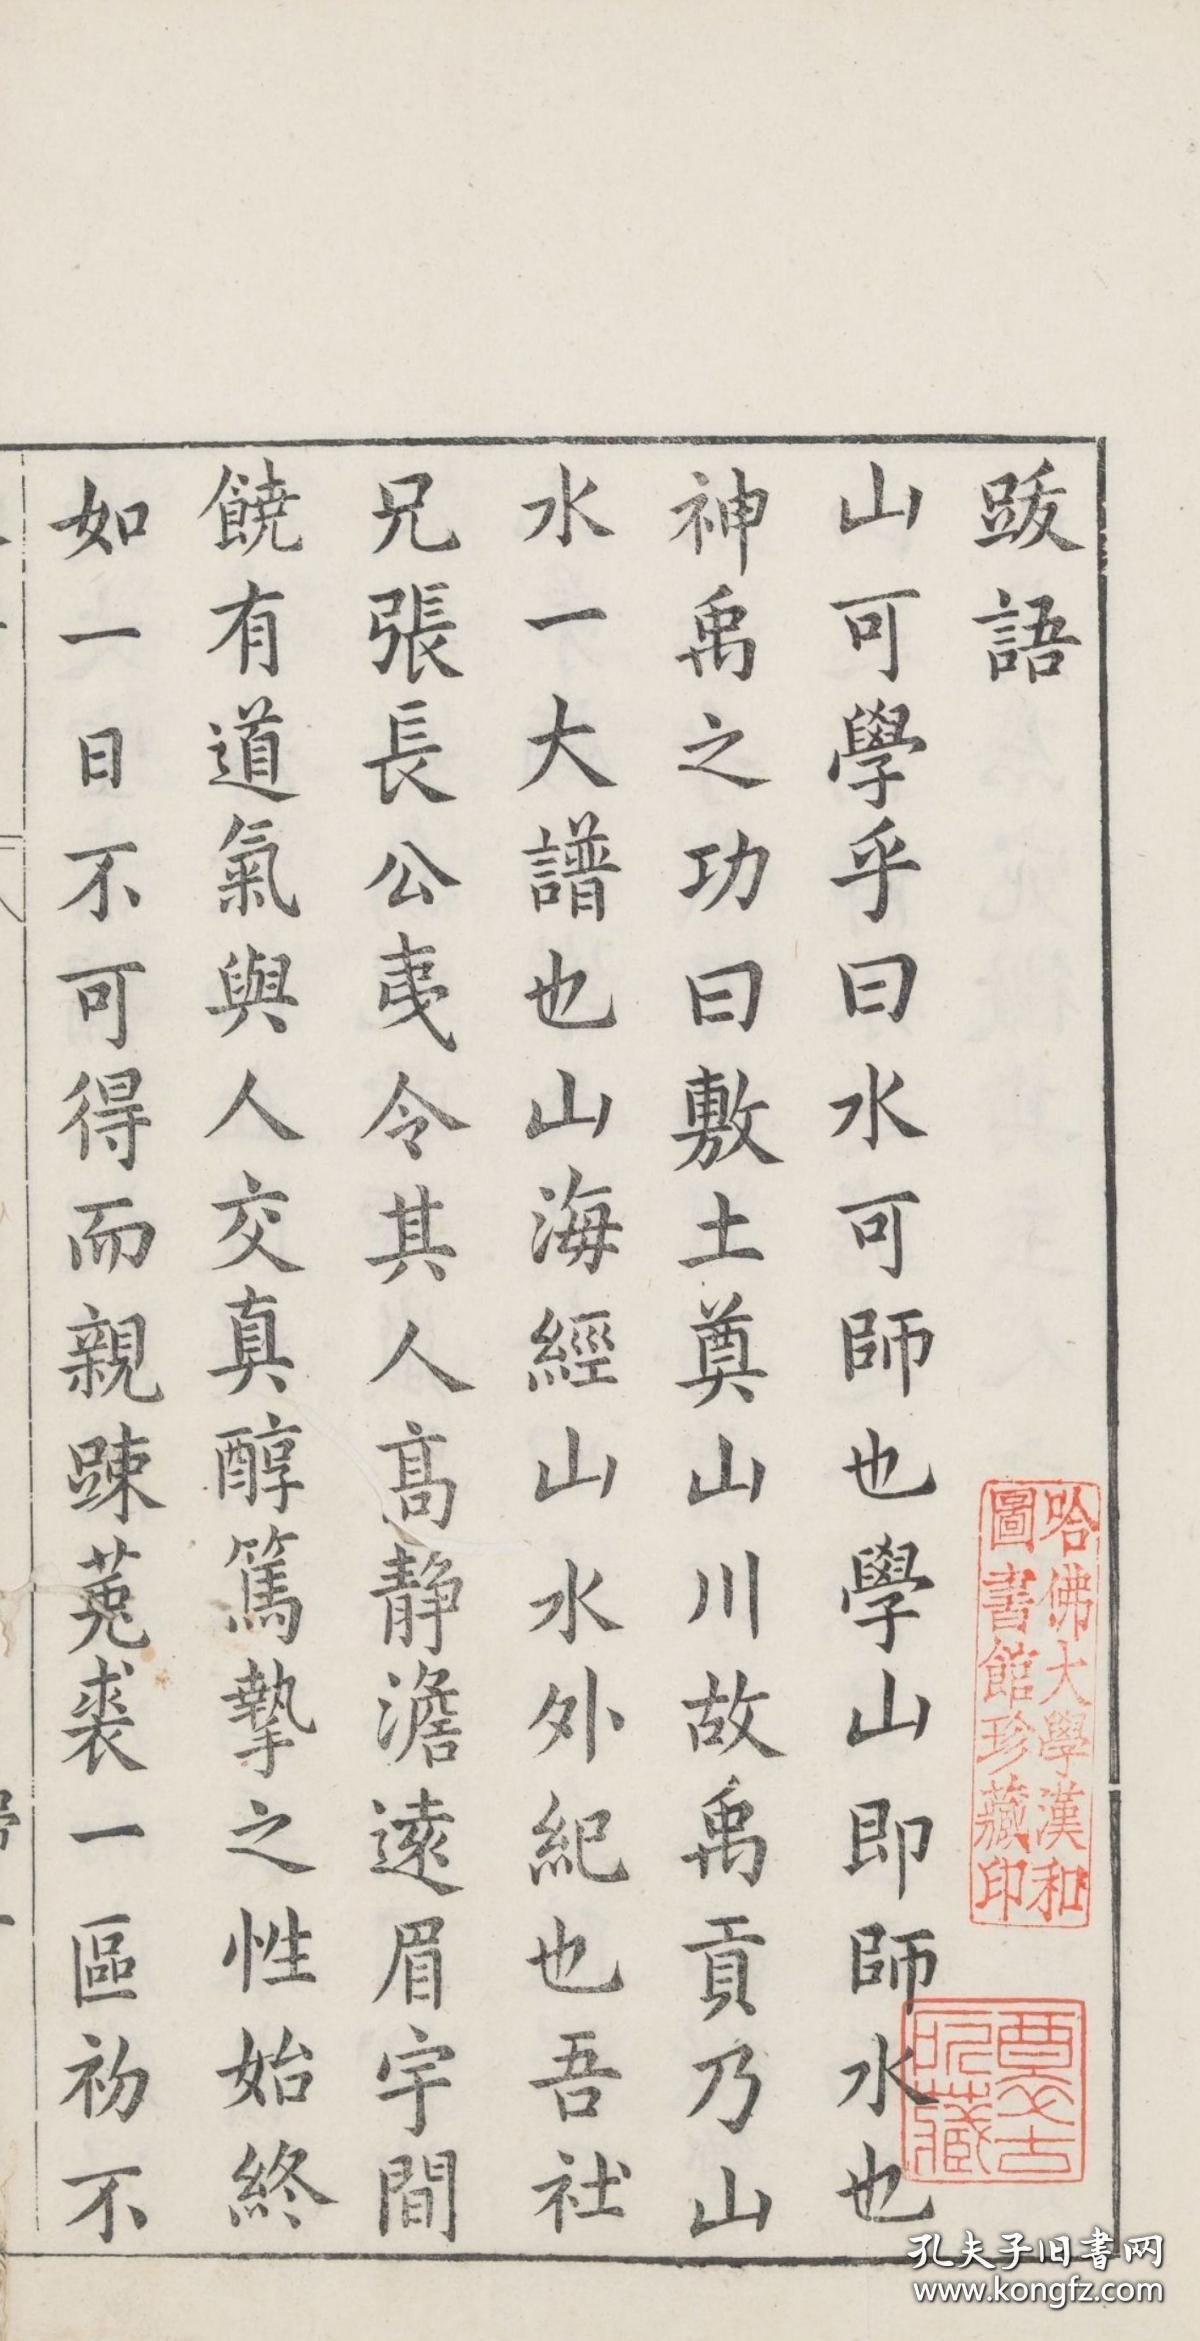 跋語
山可學乎曰水可師也學山即師水也
神禹之功曰敷土奠山川故禹貢乃山
水一大譜也山海經山水外紀也吾社
兄張長公夷令其人高靜澹遠眉宇間
饒有道氣與人交真醇篤摯之性始終
如一日不可得而親踈菟裘一區初不
哈佛大學漢和
圖書館珍藏印
孔夫子旧書网
www.kongfz.com